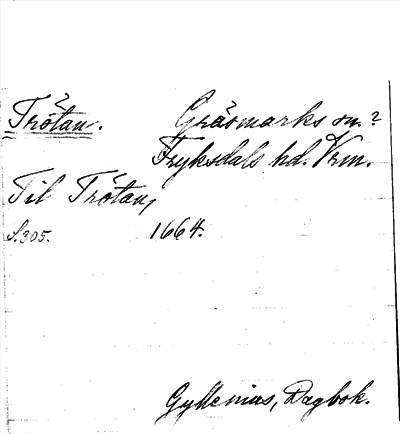 Trötan. Gräsmarks sn.?
Fryksdals hd. Vrm.
Til Trötan,
S.305. 1664.
Gyllenius, Dagbok.